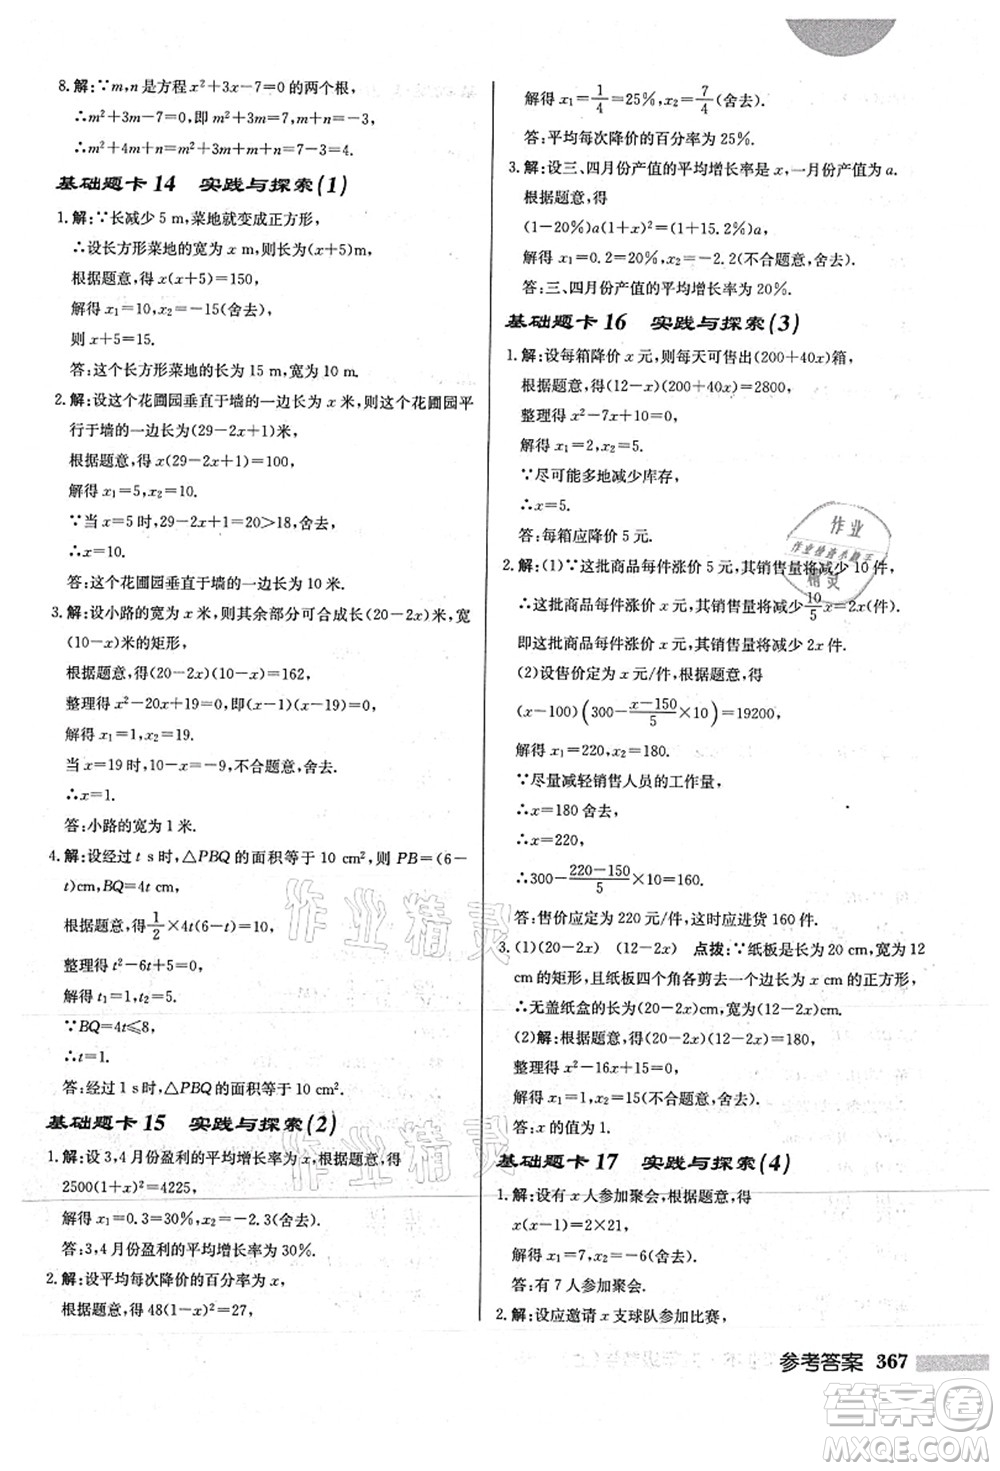 8. 解:∵m,n是方程x²+3x-7=0的两个根,
∴m²+3m-7=0,即m²+3m=7;m+n=-3.
∴m²+4m+n=m²+3m+m+n=7-3=4.
基础题卡 14 实践与探索(1)
1. 解:∵长减少 5 m,菜地就变成正方形,
∴设长方形菜地的宽为 x m,则长为(x+5)m.
根据题意,得 x(x+5)=150,
解得 x₁=10,x₂=-15(舍去).
则 x+5=15.
答:这个长方形菜地的长为 15 m,宽为 10 m.
2. 解:设这个花圃园垂直于墙的一边长为 x 米,则这个花圃园平
行于墙的一边长为(29-2x+1)米,
根据题意,得 x(29-2x+1)=100,
解得 x₁=5,x₂=10.
∵当 x=5 时,29-2x+1=20>18,舍去,
∴x=10.
答:这个花圃园垂直于墙的一边长为 10 米.
3. 解:设小路的宽为 x 米,则其余部分可合成长(20-2x)米,宽
(10-x)米的矩形,
根据题意,得(20-2x)(10-x)=162,
整理得 x²-20x+19=0,
解得 x₁=1,x₂=19.
当 x=19 时,10-x=-9,不合题意,舍去,
∴x=1.
答:小路的宽为 1 米.
4. 解:设经过 t s时,△PBQ 的面积等于 10 cm²,则 PB=(6-
t)cm,BQ=4t cm,
根据题意,得 1/2×4t(6-t)=10,
整理得 t²-6t+5=0,
解得 t₁=1,t₂=5.
∵BQ=4t≤8,
∴t=1.
答:经过 1 s时,△PBQ 的面积等于 10 cm².
基础题卡 15 实践与探索(2)
1. 解:设 3,4 月份盈利的平均增长率为 x,根据题意,得
2500(1+x)²=4225,
解得 x₁=0.3=30%,x₂=-2.3(舍去).
答:3,4 月份盈利的平均增长率为 30%.
2. 解:设平均每次降价的百分率为 x,
根据题意,得 48(1-x)²=27,
解得 x₁=1/4=25%,x₂=7/4(舍去).
答:平均每次降价的百分率为 25%.
3. 解:设三、四月份产值的平均增长率是 x,一月份产值为 a.
根据题意,得
(1-20%)a(1+x)²=(1+15.2%)a,
解得 x₁=0.2=20%,x₂=-2.2(不合题意,舍去).
答:三、四月份产值的平均增长率为 20%.
基础题卡 16 实践与探索(3)
1. 解:设每箱降价 x 元,则每天可售出(200+40x)箱,
根据题意,得(12-x)(200+40x)=2800,
整理得 x²-7x+10=0,
解得 x₁=2,x₂=5.
∵尽可能多地减少库存,
∴x=5.
答:每箱应降价 5 元.
2. 解:(1)∵这批商品每件涨价 5 元,其销售量将减少 10 件,
∴这批商品每件涨价 x 元,其销售量将减少10/5x=2x(件).
即这批商品每件涨价 x 元,其销售量将减少 2x 件.
(2)设售价定为 x 元/件,根据题意,得
(x-100)(300-(x-150)/5×10)=19200,
解得 x₁=220,x₂=180.
∵尽量减轻销售人员的工作量,
∴x=180 舍去,
∴x=220,
∴300-(220-150)/5×10=160.
答:售价应定为 220 元/件,这时应进货 160 件.
3. (1)(20-2x) (12-2x) 点拨:∵纸板是长为 20 cm,宽为 12
cm 的矩形,且纸板四个角各剪去一个边长为 x cm 的正方形,
∴无盖纸盒的长为(20-2x)cm,宽为(12-2x)cm.
(2)解:依题意,得(20-2x)(12-2x)=180,
整理得 x²-16x+15=0,
解得 x₁=1,x₂=15(不合题意,舍去).
答:x 的值为 1.
基础题卡 17 实践与探索(4)
1. 解:设有 x 人参加聚会,根据题意,得
x(x-1)=2×21,
解得 x₁=7,x₂=-6(舍去).
答:有 7 人参加聚会.
2. 解:设应邀请 x 支球队参加比赛,
参考答案 367
作业
作业检查小助手
精灵
作业精灵
作业精灵
答案卷
MXQE.COM